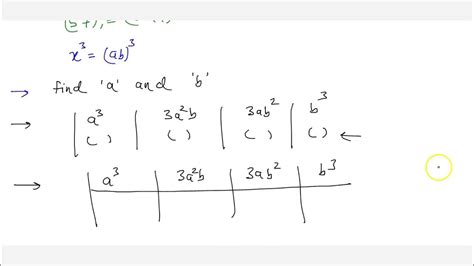 x³ = (ab)³
→ find 'a' and 'b'
→ | a³ | 3a²b | 3ab² | b³
( ) | ( ) | ( ) | ( ) ←
→ | a³ | 3a²b | 3ab² | b³